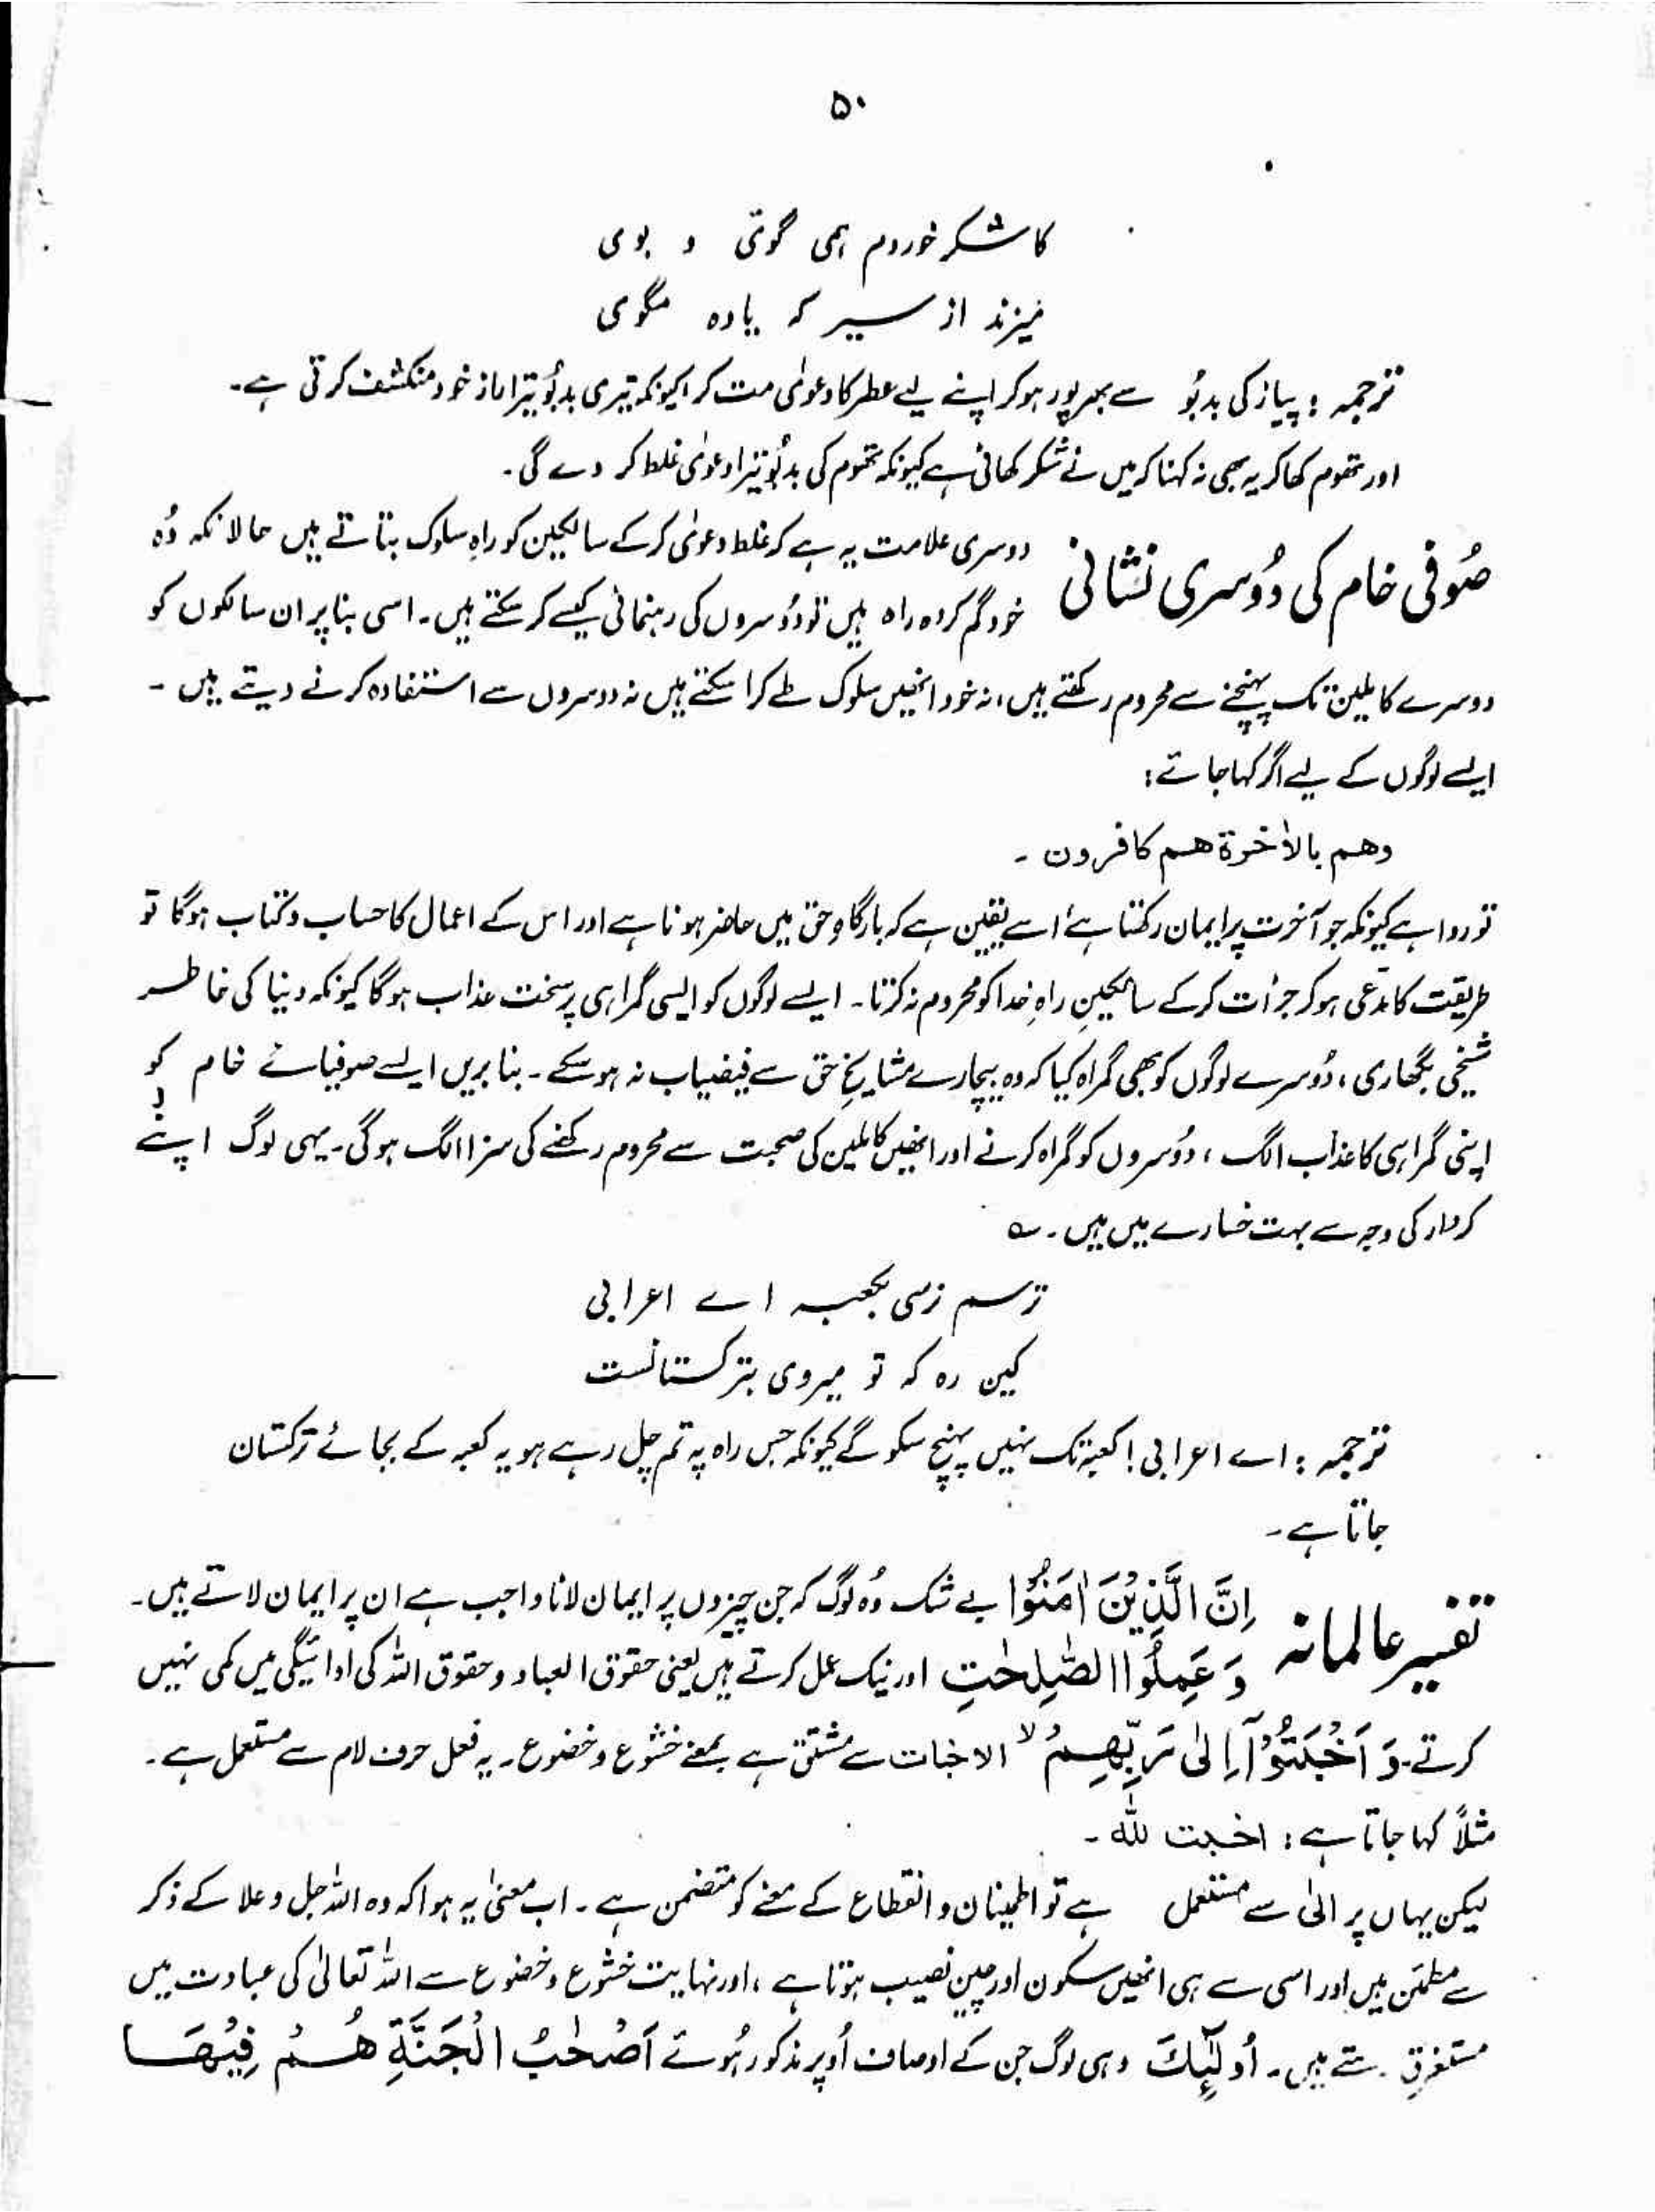 ۵۰
کاشکر خوردم ہمی گوئی و بوی
میزند از سیر کہ یادہ مگوی
ترجمہ : پیاز کی بدبُو سے بھرپور ہوکر اپنے لیے عطر کا دعوٰی مت کر، کیونکہ تیری بدبُو تیرا راز خود منکشف کرتی ہے۔
اور تھوم کھاکر یہ بھی نہ کہنا کہ میں نے شکر کھائی ہے کیونکہ تھوم کی بدبُو تیرا دعوٰی غلط کر دے گی۔
صُوفی خام کی دُوسری نشانی دوسری علامت یہ ہے کہ غلط دعوٰی کرکے سالکین کو راہِ سلوک بتاتے ہیں حالانکہ وُہ
خود گم کردہ راہ ہیں تو دُوسروں کی رہنمائی کیسے کر سکتے ہیں۔ اسی بنا پر ان سالکوں کو
دوسرے کاملین تک پہنچنے سے محروم رکھتے ہیں، نہ خود انھیں سلوک طے کرا سکتے ہیں نہ دوسروں سے استفادہ کرنے دیتے ہیں ۔
ایسے لوگوں کے لیے اگر کہا جائے :
وھم بالاٰخرۃ ھم کافرون ۔
تو روا ہے کیونکہ جو آخرت پر ایمان رکھتا ہے اسے یقین ہے کہ بارگاہِ حق میں حاضر ہونا ہے اور اس کے اعمال کا حساب و کتاب ہوگا تو
طریقت کا مدّعی ہوکر جرأت کرکے سالکینِ راہِ خدا کو محروم نہ کرتا۔ ایسے لوگوں کو ایسی گمراہی پر سخت عذاب ہوگا کیونکہ دنیا کی خاطر
شیخی بگھاری، دُوسرے لوگوں کو بھی گمراہ کیا کہ وہ بیچارے مشایخِ حق سے فیضیاب نہ ہوسکے۔ بنا بریں ایسے صوفیائے خام کو
اپنی گمراہی کا عذاب الگ، دُوسروں کو گمراہ کرنے اور انھیں کاملین کی صحبت سے محروم رکھنے کی سزا الگ ہوگی۔ یہی لوگ اپنے
کردار کی وجہ سے بہت خسارے میں ہیں۔ ؎
ترسم نرسی بکعبہ اے اعرابی
کین رہ کہ تو میروی بترکستانست
ترجمہ : اے اعرابی! کعبہ تک نہیں پہنچ سکو گے کیونکہ جس راہ پہ تم چل رہے ہو یہ کعبہ کے بجائے ترکستان
جاتا ہے۔
تفسیر عالمانہ اِنَّ الَّذِیْنَ اٰمَنُوْا بے شک وُہ لوگ کہ جن چیزوں پر ایمان لانا واجب ہے ان پر ایمان لاتے ہیں۔
وَ عَمِلُوا الصّٰلِحٰتِ اور نیک عمل کرتے ہیں یعنی حقوق العباد و حقوق اللہ کی ادائیگی میں کمی نہیں
کرتے۔ وَ اَخْبَتُوْۤا اِلٰی رَبِّھِمْ ۙ الاخبات سے مشتق ہے بمعنے خشوع و خضوع۔ یہ فعل حرف لام سے مستعمل ہے۔
مثلاً کہا جاتا ہے : اخبت للّٰہ ۔
لیکن یہاں پر الٰی سے مستعمل ہے تو اطمینان و انقطاع کے معنے کو متضمن ہے۔ اب معنیٰ یہ ہوا کہ وہ اللہ جل و علا کے ذکر
سے مطمئن ہیں اور اسی سے ہی انھیں سکون اور چین نصیب ہوتا ہے، اور نہایت خشوع و خضوع سے اللہ تعالیٰ کی عبادت میں
مستغرق ۔ تے ہیں۔ اُولٰٓئِكَ وہی لوگ جن کے اوصاف اُوپر مذکور ہُوئے اَصْحٰبُ الْجَنَّةِ ھُمْ فِیْھَا